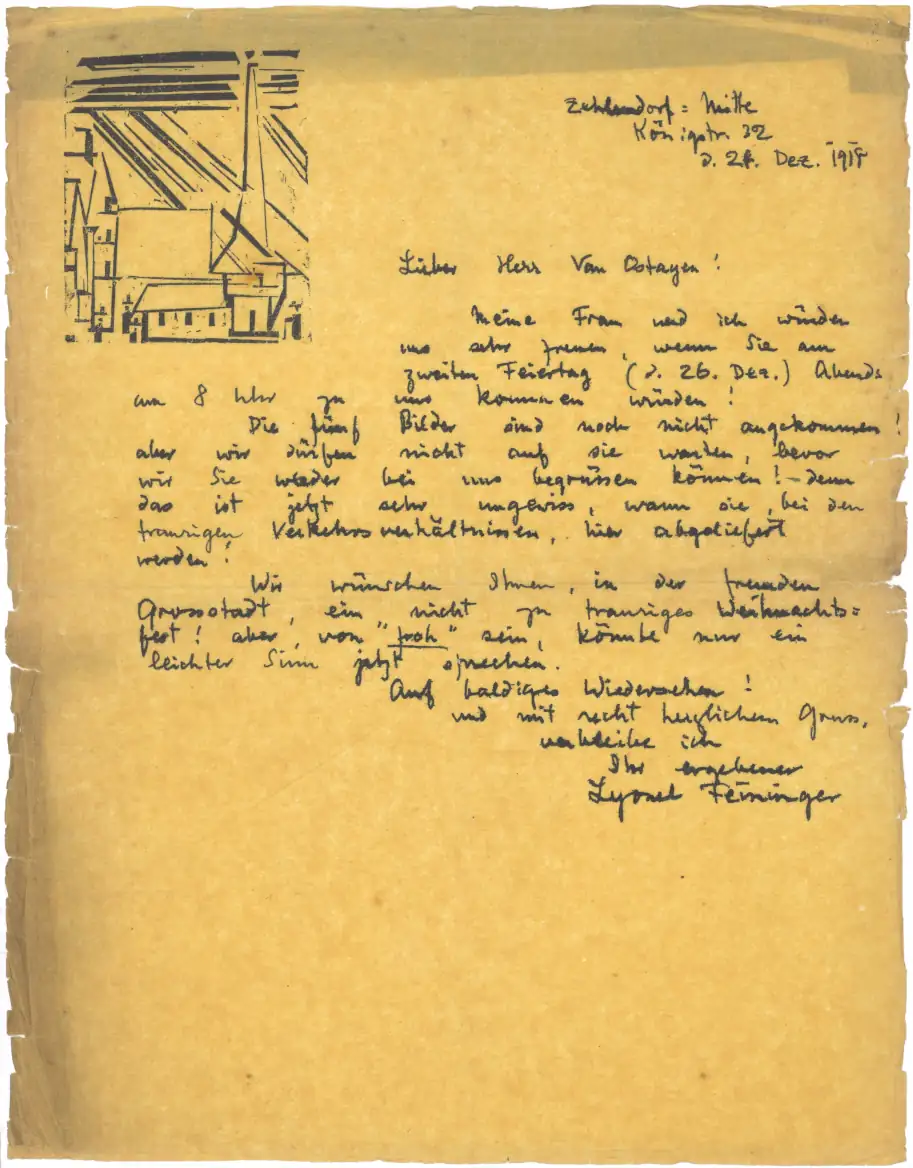 Zehlendorf = Mitte
Königstr. 32
d. Dez. 1918
Lieber Herr Van Ostayen!
Meine Frau und ich würden
uns sehr freuen, wenn Sie am
zweiten Feiertag (d. 26. Dez.) Abends
um 8 Uhr zu uns kommen würden!
Die fünf Bilder sind noch nicht angekommen!
aber wir dürfen nicht auf sie warten, bevor
wir Sie wieder bei uns begrüssen können! – denn
das ist jetzt sehr ungewiss, wann sie, bei den
traurigen Verkehrsverhältnissen, hier abgeliefert
werden!
Wir wünschen Ihnen, in der fremden
Grossstadt, ein nicht zu trauriges Weihnachts=
fest! aber, von "froh" sein, könnte nur ein
leichter Sinn jetzt sprechen.
Auf baldiges Wiedersehen!
und mit recht herzlichem Gruss,
verbleibe ich
Ihr ergebener
Lyonel Feininger